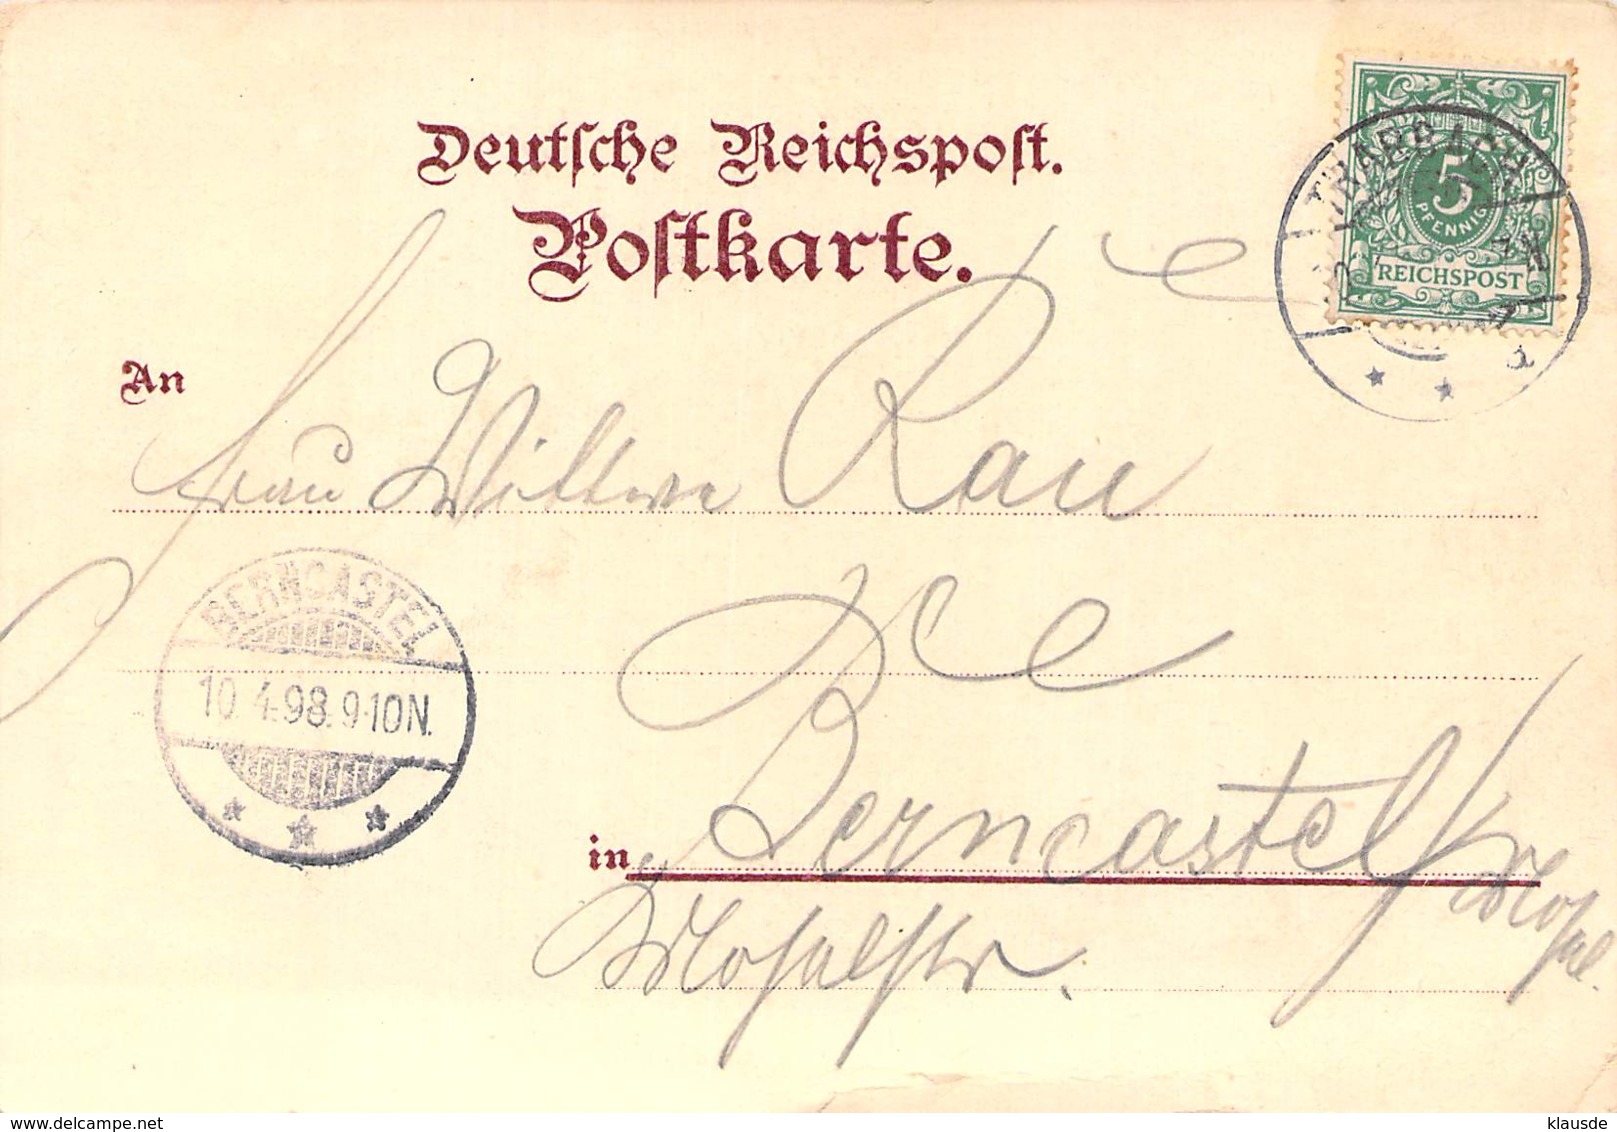 Deutsche Reichspost.
Postkarte.
TRARBACH
5
PFENNIG
REICHSPOST
An
Frau Wittwe Rau
BERNCASTEL
10.4.98. 9-10N.
in Berncastel
a/Mosel.
Moselstr.
klausde
delcampe.net